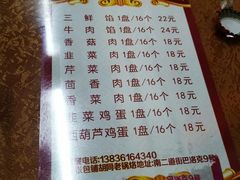 三鲜馅1盘/16个 22元
牛肉馅1盘/16个 24元
香菇肉1盘/16个 18元
韭菜肉1盘/16个 18元
芹菜肉1盘/16个 18元
茴香肉1盘/16个 18元
香菜肉1盘/16个 18元
韭菜鸡蛋1盘/16个 18元
西葫芦鸡蛋1盘/16个 18元
电话:13836164340
包铺胡同老锅烙地址:南二道街巴洛克9号